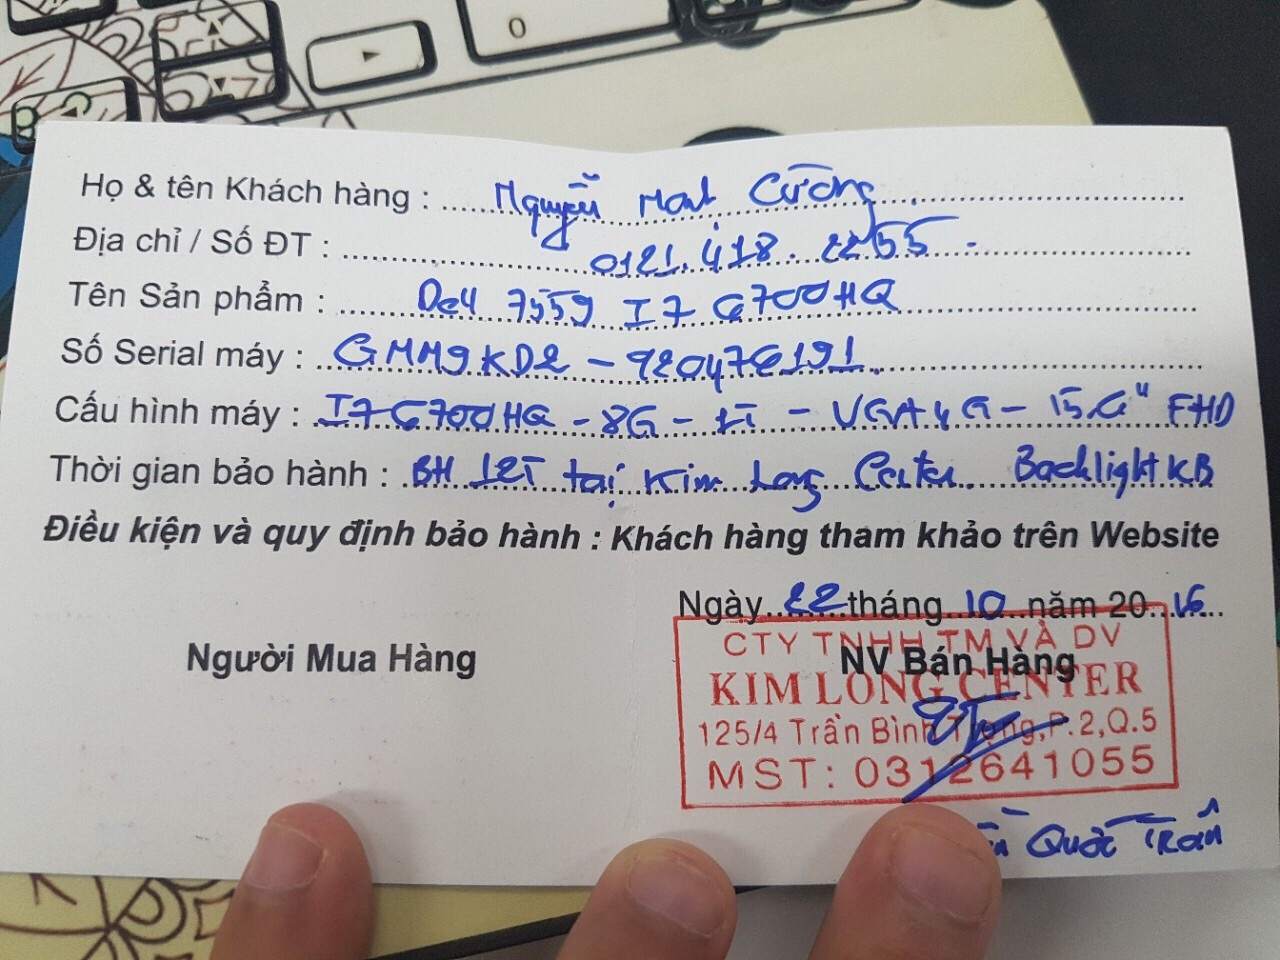 0
Họ & tên Khách hàng : Nguyễn Mạnh Cường
Địa chỉ / Số ĐT : 0121.418.2255
Tên Sản phẩm : Dell 7559 I7 6700HQ
Số Serial máy : GMM9KD2 - 920476191
Cấu hình máy : I7 6700HQ - 8G - 1T - VGA 4G - 15.6" FHD
Thời gian bảo hành : BH 12T tại Kim Long Center. Backlight KB
Điều kiện và quy định bảo hành : Khách hàng tham khảo trên Website
Ngày 22 tháng 10 năm 2016
Người Mua Hàng
NV Bán Hàng
CTY TNHH TM VÀ DV
KIM LONG CENTER
125/4 Trần Bình Trọng,P.2,Q.5
MST: 0312641055
Quốc